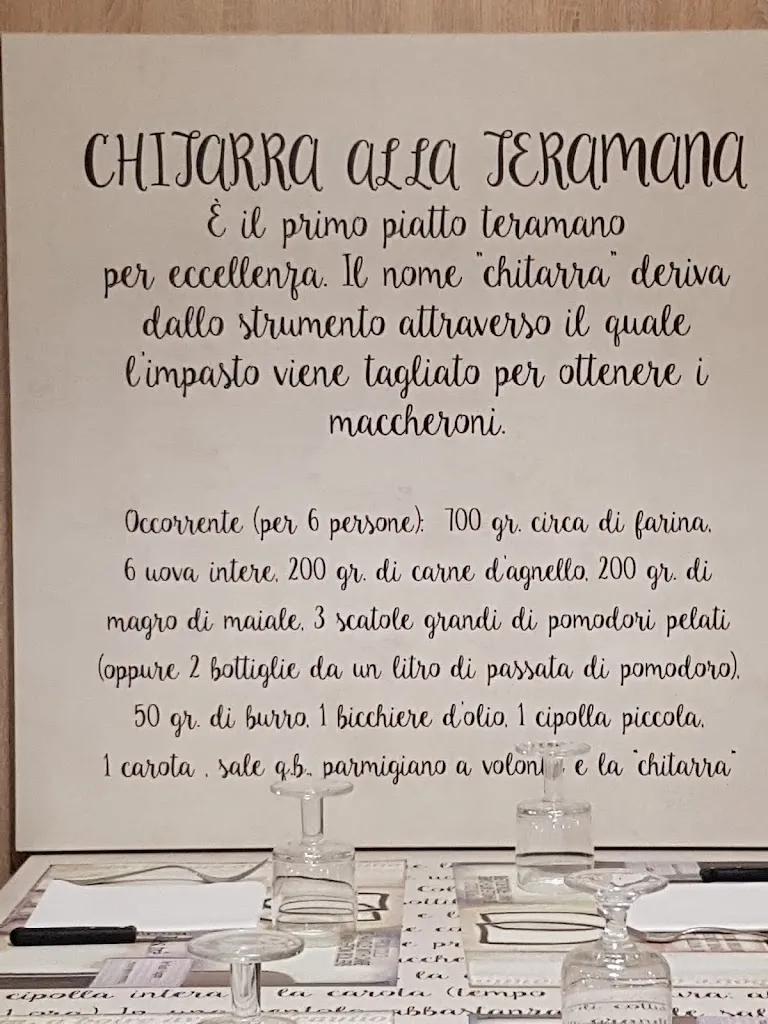 CHITARRA ALLA TERAMANA
È il primo piatto teramano
per eccellenza. Il nome "chitarra" deriva
dallo strumento attraverso il quale
l'impasto viene tagliato per ottenere i
maccheroni.
Occorrente (per 6 persone): 700 gr. circa di farina,
6 uova intere, 200 gr. di carne d'agnello, 200 gr. di
magro di maiale, 3 scatole grandi di pomodori pelati
(oppure 2 bottiglie da un litro di passata di pomodoro),
50 gr. di burro, 1 bicchiere d'olio, 1 cipolla piccola,
1 carota , sale q.b., parmigiano a volontà e la "chitarra"
cipolla intera la carota (tempo